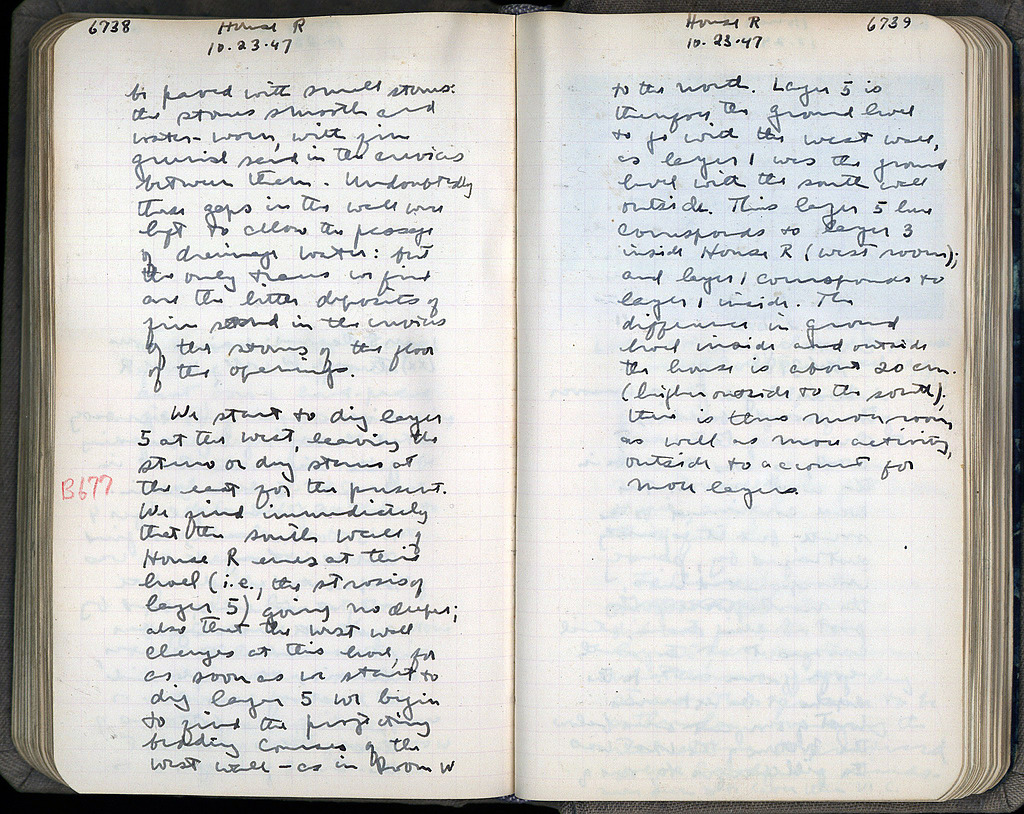 6738
House R
10.23.47
be paved with small stones:
the stones smooth and
water-worn, with fine
gravel sand in the crevices
between them. Undoubtedly
these gaps in the wall were
left to allow the passage
of drainage water: but
the only traces we find
are the little deposits of
fine sand in the crevices
of the stones of the floor
of the openings.
We start to dig layer
5 at the west, leaving the
stones at
the east for the present.
B677
We find immediately
that the south wall of
House R ends at this
level (i.e., the strosis of
layer 5) going no deeper;
also that the west wall
changes at this level, for
as soon as we start to
dig layer 5 we begin
to find the projecting
bedding courses of the
west wall – as in Room W
House R
6739
10.23.47
to the north. Layer 5 is
therefore the ground level
to go with the west wall,
as layer 1 was the ground
level with the south wall
outside. This layer 5 here
corresponds to layer 3
inside House R (west room);
and layer 1 corresponds to
layer 1 inside. The
difference in ground
level inside and outside
the house is about 20 cm.
(higher outside to the south).
there is thus more room,
as well as more activity,
outside to account for
more layers.